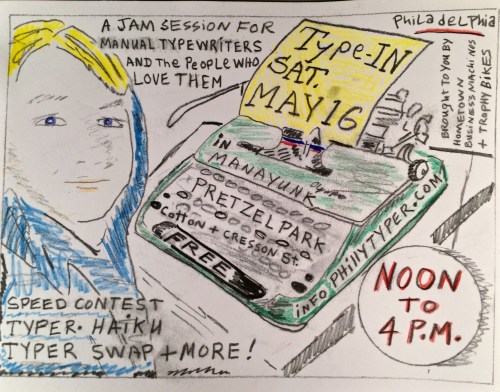 A JAM SESSION FOR
MANUAL TYPEWRITERS
AND THE PEOPLE WHO
LOVE THEM
PHiLaDELPHia
BROUGHT TO YOU BY
HOMETOWN
BUSINESS MACHINES
+ TROPHY BIKES
TYPE-IN
SAT.
MAY 16
IN
MANAYUNK
PRETZEL PARK
COTTON + CRESSON ST
FREE
INFO PHILLYTYPER.COM
NOON
TO
4 P.M.
SPEED CONTEST
TYPER. HAIKU
TYPER SWAP + MORE!